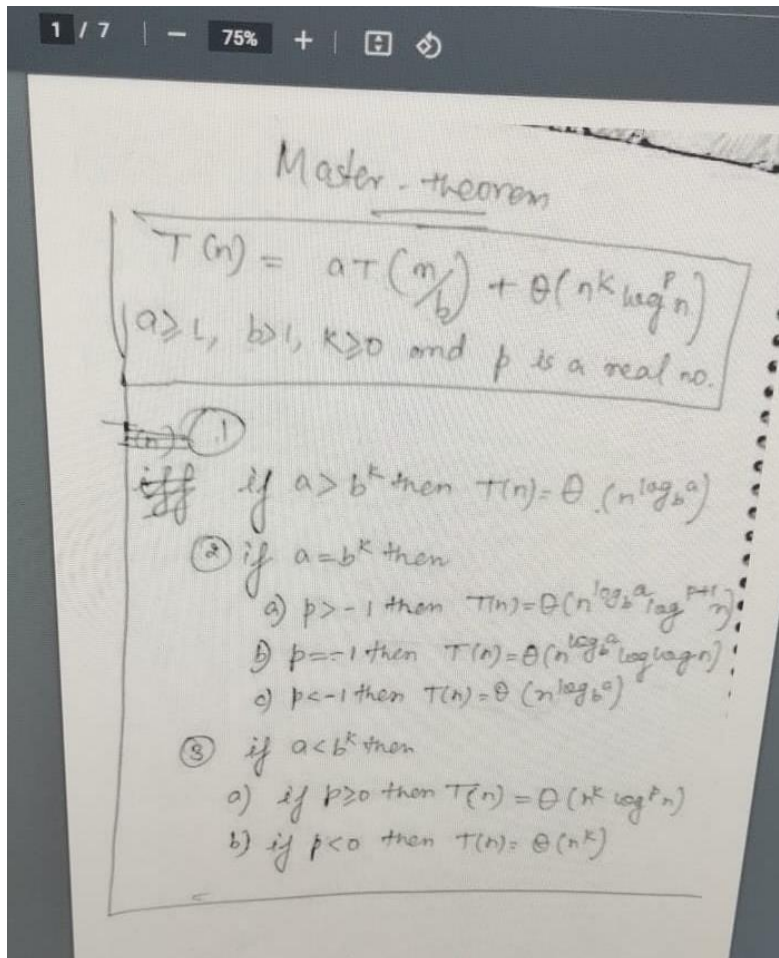 1 / 7 | − 75% + |
Master - theorem
T(n) = aT(n/b) + θ(n^k log^p n)
a≥1, b>1, k≥0 and p is a real no.
1
if a > b^k then T(n) = θ (n^log_b a)
② if a = b^k then
a) p > -1 then T(n) = θ(n^log_b a log^p+1 n)
b) p = -1 then T(n) = θ(n^log_b a log log n)
c) p < -1 then T(n) = θ (n^log_b a)
③ if a < b^k then
a) if p≥0 then T(n) = θ(n^k log^p n)
b) if p<0 then T(n) = θ(n^k)